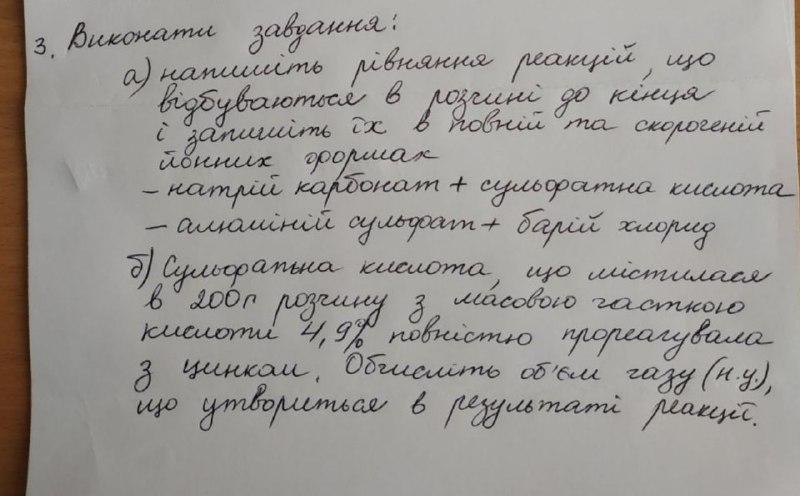 3. Виконати завдання:
а) напишіть рівняння реакцій, що
відбуваються в розчині до кінця
і запишіть їх в повній та скороченій
йонних формах
– натрій карбонат + сульфатна кислота
– алюміній сульфат + барій хлорид
б) Сульфатна кислота, що містилася
в 200г розчину з масовою часткою
кислоти 4,9% повністю прореагувала
з цинком. Обчисліть об'єм газу (н.у.),
що утвориться в результаті реакції.